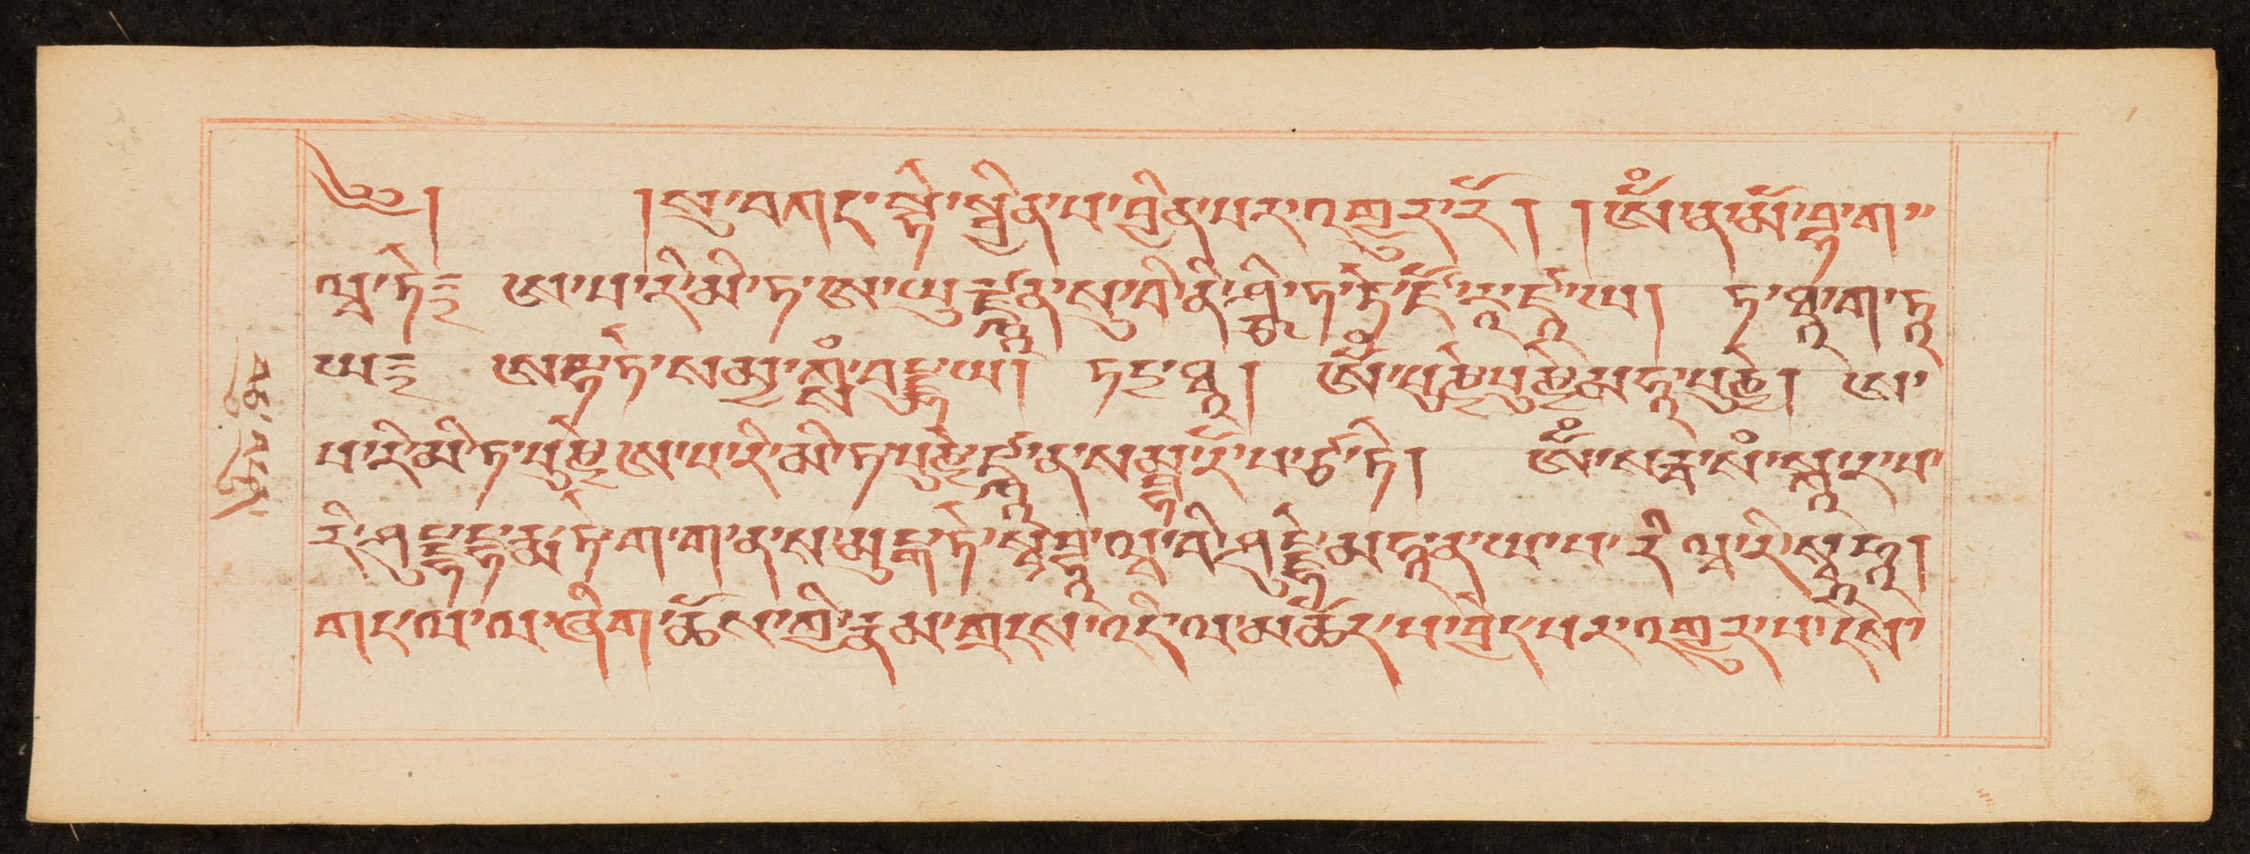 ༄། །སུ་བཏང་སྟེ་སྦྱིན་པ་བྱིན་པར་འགྱུར་རོ། །ཨོཾ་ན་མོ་བྷ་ག་
ཝ་ཏེ༔ ཨ་པ་རི་མི་ཏ་ཨ་ཡུརྫྙཱ་ན་སུ་བི་ནི་ཤྩི་ཏ་ཏེ་ཛོ་རཱ་ཛཱ་ཡ། ཏ་ཐཱ་ག་ཏཱ་
ཡ༔ ཨརྷ་ཏེ་སམྱ་ཀྶཾ་བུདྡྷཱ་ཡ། ཏདྱ་ཐཱ། ཨོཾ་པུཎྱེ་པུཎྱེ་མ་ཧཱ་པུཎྱེ། ཨ་
པ་རི་མི་ཏ་པུཎྱེ་ཨ་པ་རི་མི་ཏ་པུཎྱེ་ཛྙཱ་ན་སམྦྷ་རོ་པ་ཙི་ཏེ། ཨོཾ་སརྦ་སཾ་སྐཱ་ར་པ་
རི་ཤུདྡྷ་དྷརྨ་ཏེ་ག་ག་ན་ས་མུདྒ་ཏེ་སྭ་བྷཱ་ཝ་བི་ཤུདྡྷེ་མ་ཧཱ་ན་ཡ་པ་རི་ཝ་རི་སྭཱ་ཧཱ།
གང་ལ་ལ་ཞིག་ཆོས་ཀྱི་རྣམ་གྲངས་འདི་ལ་མཆོད་པ་བྱེད་པར་འགྱུར་པ་དེས་